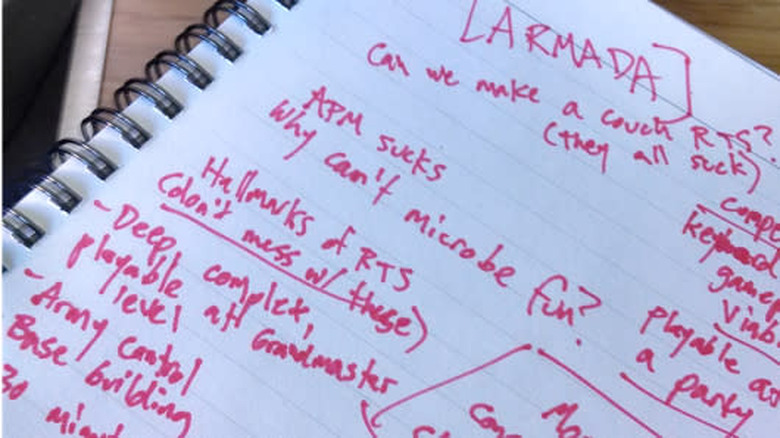 [ARMADA]
Can we make a couch RTS?
(they all suck)
APM sucks
Why can't microbe fun?
Hallmarks of RTS
(don't mess w/ these)
- Deep, complex,
playable at Grandmaster
level
- Army control
Base building
30
keyboard
Playable
a party